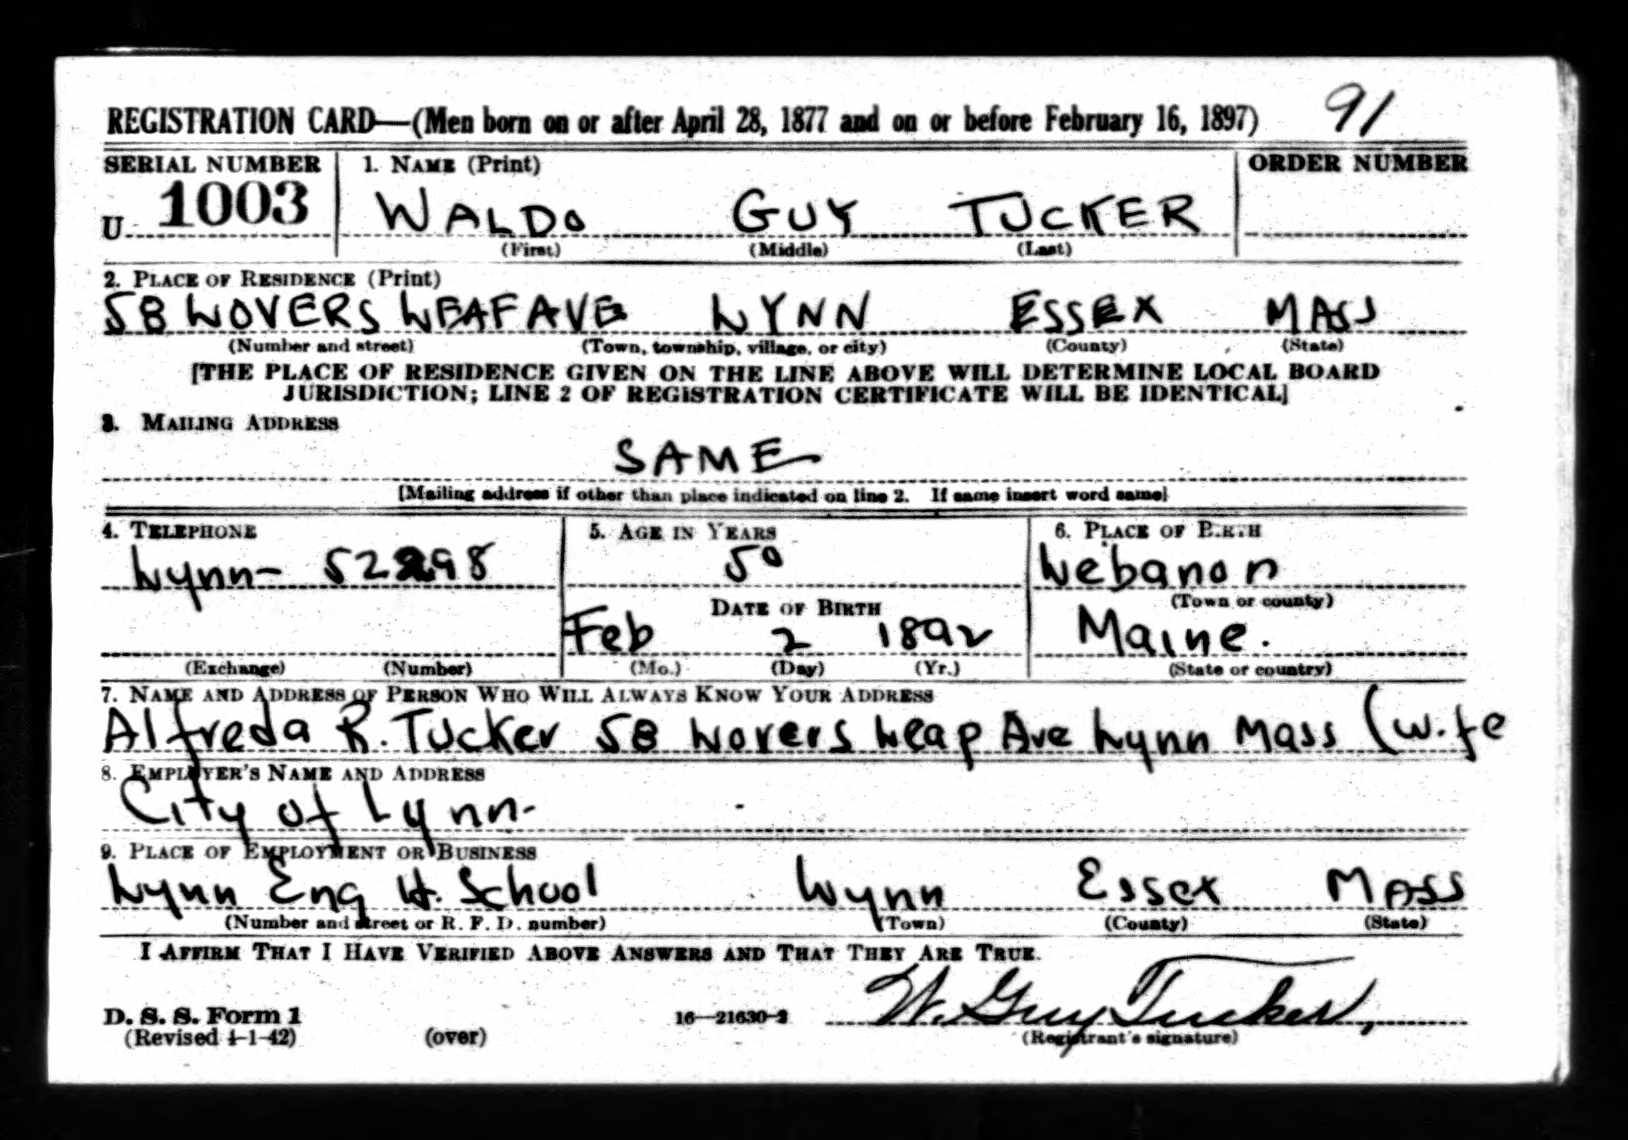 91
REGISTRATION CARD—(Men born on or after April 28, 1877 and on or before February 16, 1897)
SERIAL NUMBER 1. NAME (Print) ORDER NUMBER
U 1003 WALDO GUY TUCKER
(First) (Middle) (Last)
2. PLACE OF RESIDENCE (Print)
58 LOVERS LEAF AVE LYNN ESSEX MASS
(Number and street) (Town, township, village, or city) (County) (State)
[THE PLACE OF RESIDENCE GIVEN ON THE LINE ABOVE WILL DETERMINE LOCAL BOARD
JURISDICTION; LINE 2 OF REGISTRATION CERTIFICATE WILL BE IDENTICAL]
3. MAILING ADDRESS
SAME
[Mailing address if other than place indicated on line 2. If same insert word same]
4. TELEPHONE 5. AGE IN YEARS 6. PLACE OF BIRTH
Lynn- 52298 50 Lebanon
DATE OF BIRTH (Town or county)
Feb 2 1892 Maine.
(Exchange) (Number) (Mo.) (Day) (Yr.) (State or country)
7. NAME AND ADDRESS OF PERSON WHO WILL ALWAYS KNOW YOUR ADDRESS
Alfreda R. Tucker 58 Lovers Leap Ave Lynn Mass (wife
8. EMPLOYER'S NAME AND ADDRESS
City of Lynn-
9. PLACE OF EMPLOYMENT OR BUSINESS
Lynn Eng H. School Lynn Essex Mass
(Number and street or R. F. D. number) (Town) (County) (State)
I AFFIRM THAT I HAVE VERIFIED ABOVE ANSWERS AND THAT THEY ARE TRUE.
W. Guy Tucker,
D. S. S. Form 1 16—21630-2
(Revised 4-1-42) (over) (Registrant's signature)